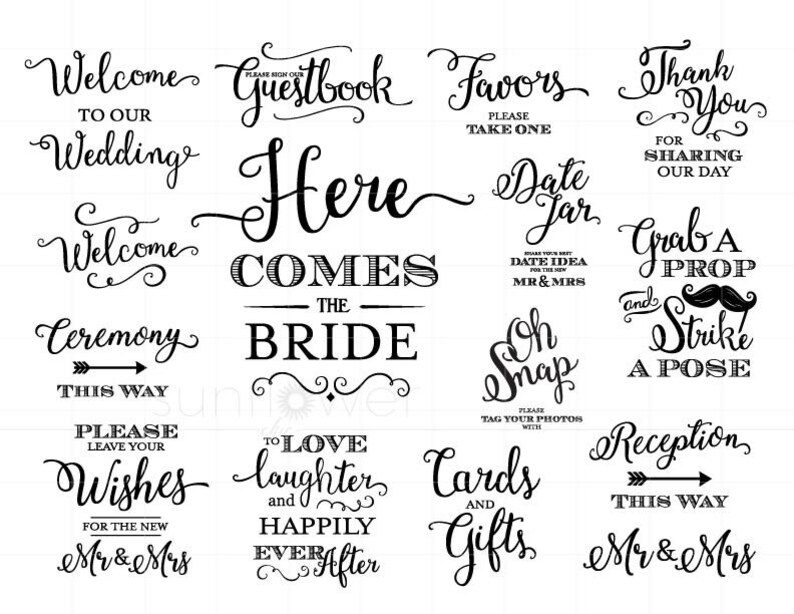 Welcome
TO OUR
Wedding
PLEASE SIGN OUR
Guestbook
Favors
PLEASE
TAKE ONE
Thank
You
FOR
SHARING
OUR DAY
Welcome
Here
COMES
THE
BRIDE
Date
Jar
SHARE YOUR BEST
DATE IDEA
FOR THE NEW
MR & MRS
Grab A
PROP
and
Strike
A POSE
Ceremony
THIS WAY
Oh
Snap
PLEASE
TAG YOUR PHOTOS
WITH
PLEASE
LEAVE YOUR
Wishes
FOR THE NEW
Mr & Mrs
TO LOVE
laughter
and
HAPPILY
EVER After
Cards
AND
Gifts
Reception
THIS WAY
Mr & Mrs
sunflower